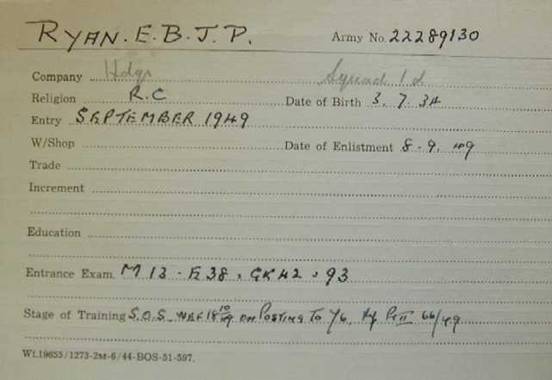 RYAN. E. B. J. P. Army No. 22289130
Company Hdqs Squad 1d
Religion R.C Date of Birth 3. 7. 34
Entry SEPTEMBER 1949
W/Shop Date of Enlistment 8-9. 49
Trade
Increment
Education
Entrance Exam. M 13 - E 38, GK 42, 93
Stage of Training S.O.S. WEF 18 10/49 ON POSTING TO Pt II 66/49
Wt.19655/1273-2M-6/44-BOS-51-597.